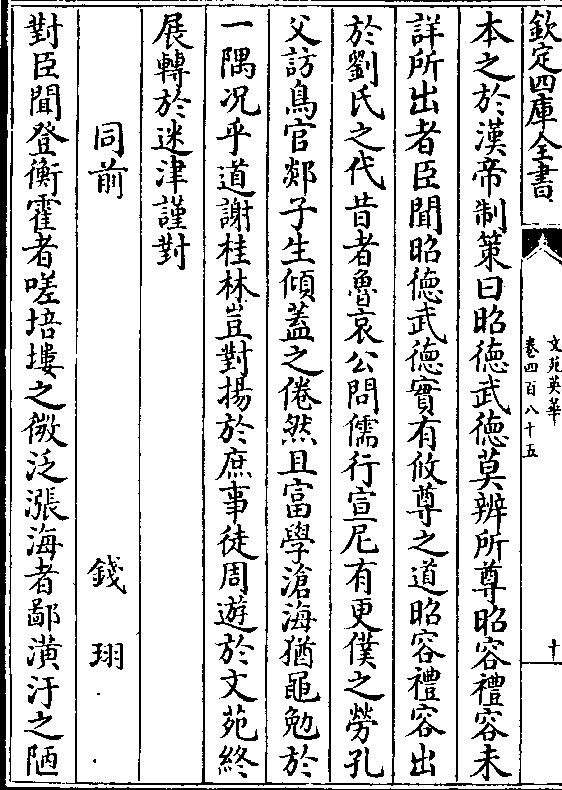 欽定四庫全書
文苑英華
卷四百八十五
十
本之於漢帝制策曰昭徳武徳莫辨所尊昭容禮容未
詳所出者臣聞昭徳武徳實有攸尊之道昭容禮容出
於劉氏之代昔者魯哀公問儒行宣尼有更僕之勞孔
父訪鳥官郯子生傾蓋之倦然且富學滄海猶黽勉於
一隅况乎道謝桂林豈對揚於庶事徒周遊於文苑終
展轉於迷津謹對
同前 錢珝
對臣聞登衡霍者嗟培塿之微泛漲海者鄙潢汙之陋